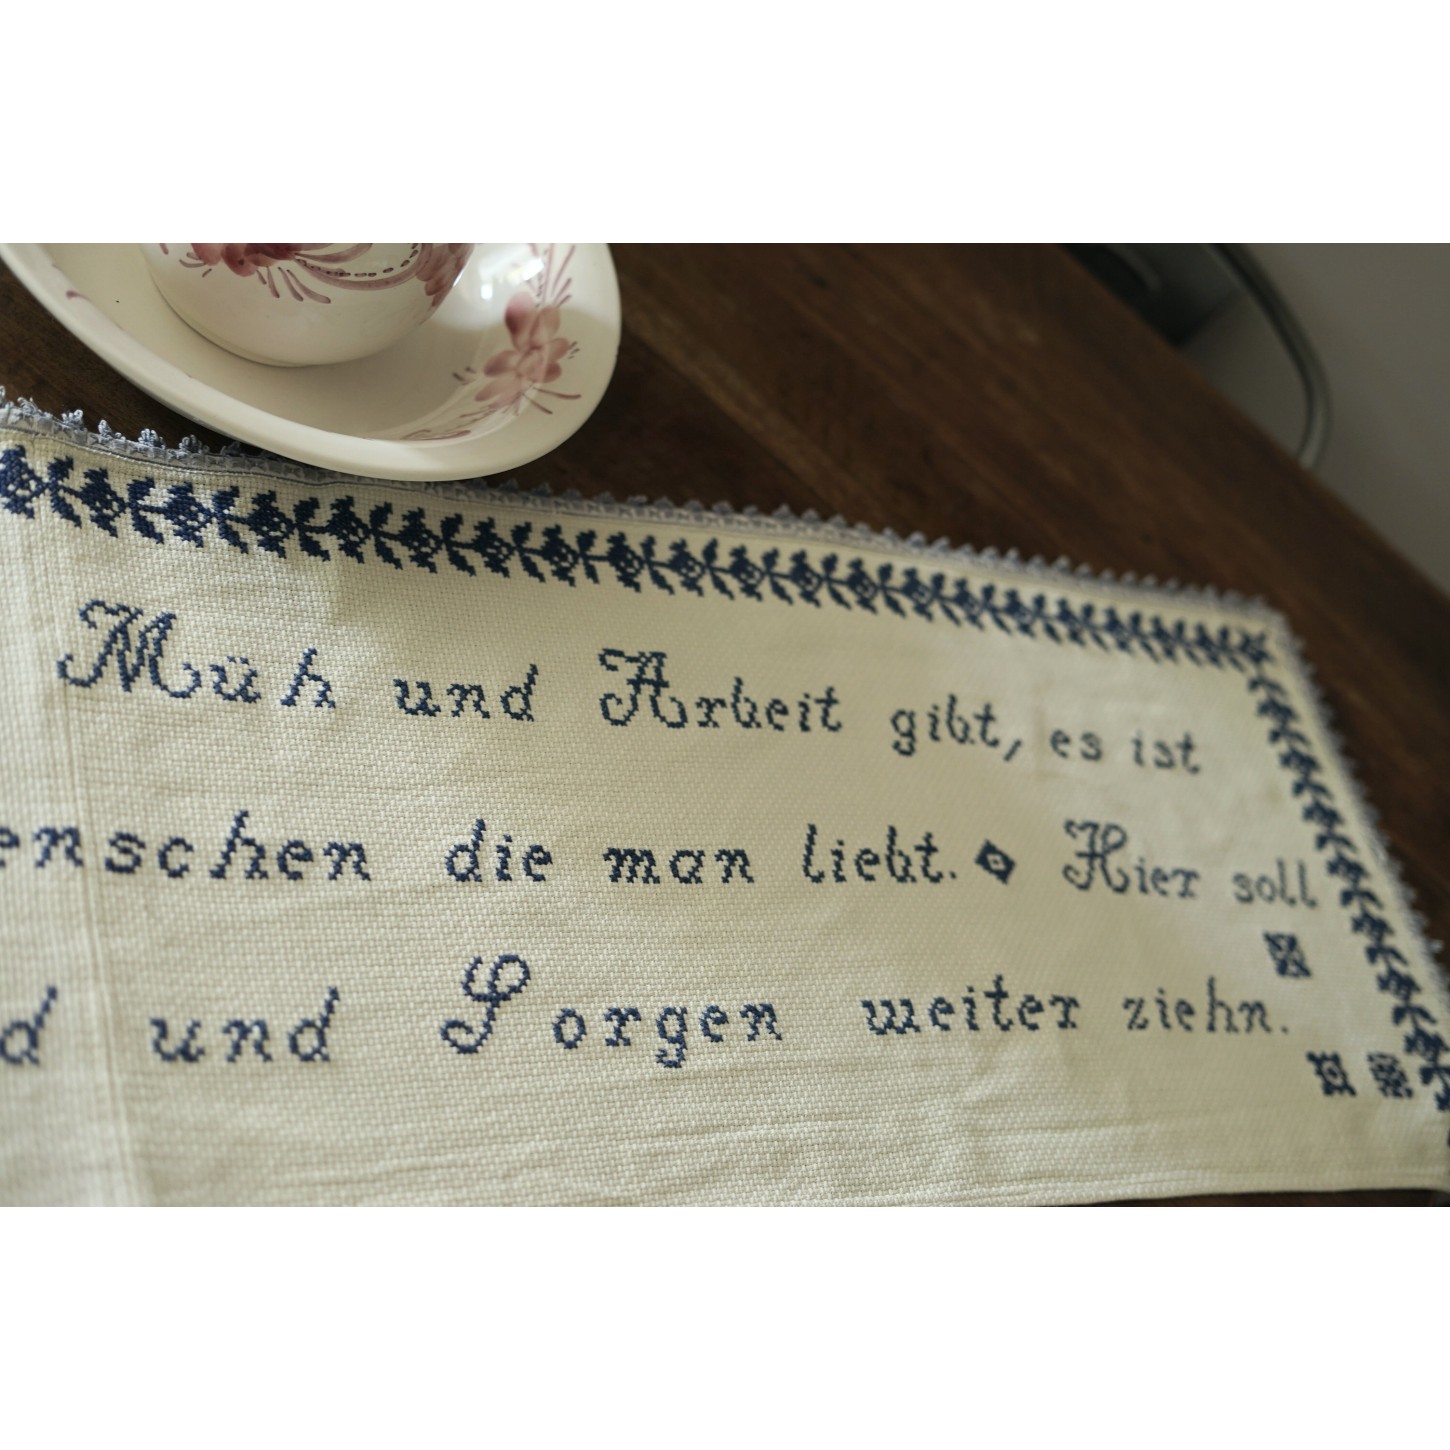 Müh und Arbeit gibt, es ist
enschen die man liebt. Hier soll
d und Sorgen weiter ziehn.